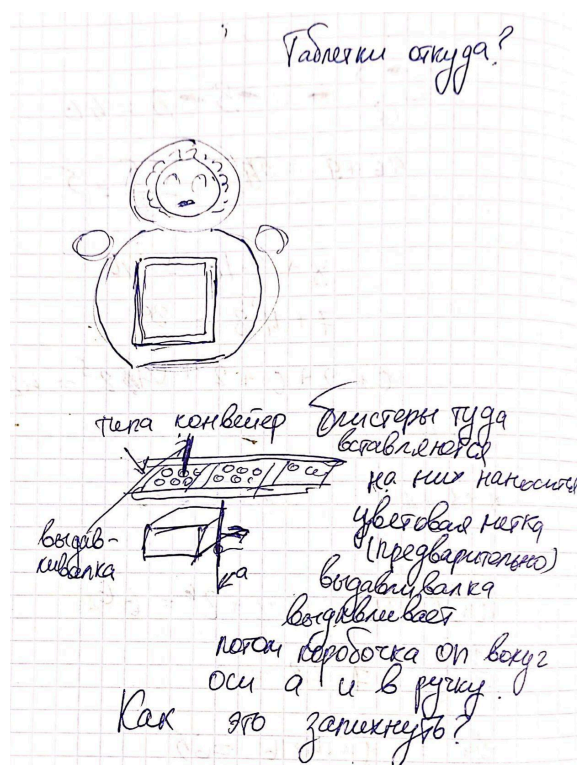 Таблетки откуда?
типа конвейер
блистеры туда
вставляются
на них наносится
цветовая метка
(предварительно)
выдав-
ливалка
a
выдавливалка
выдавливает
потом коробочка оп вокуг
оси а и в ручку.
Как это запихнуть?